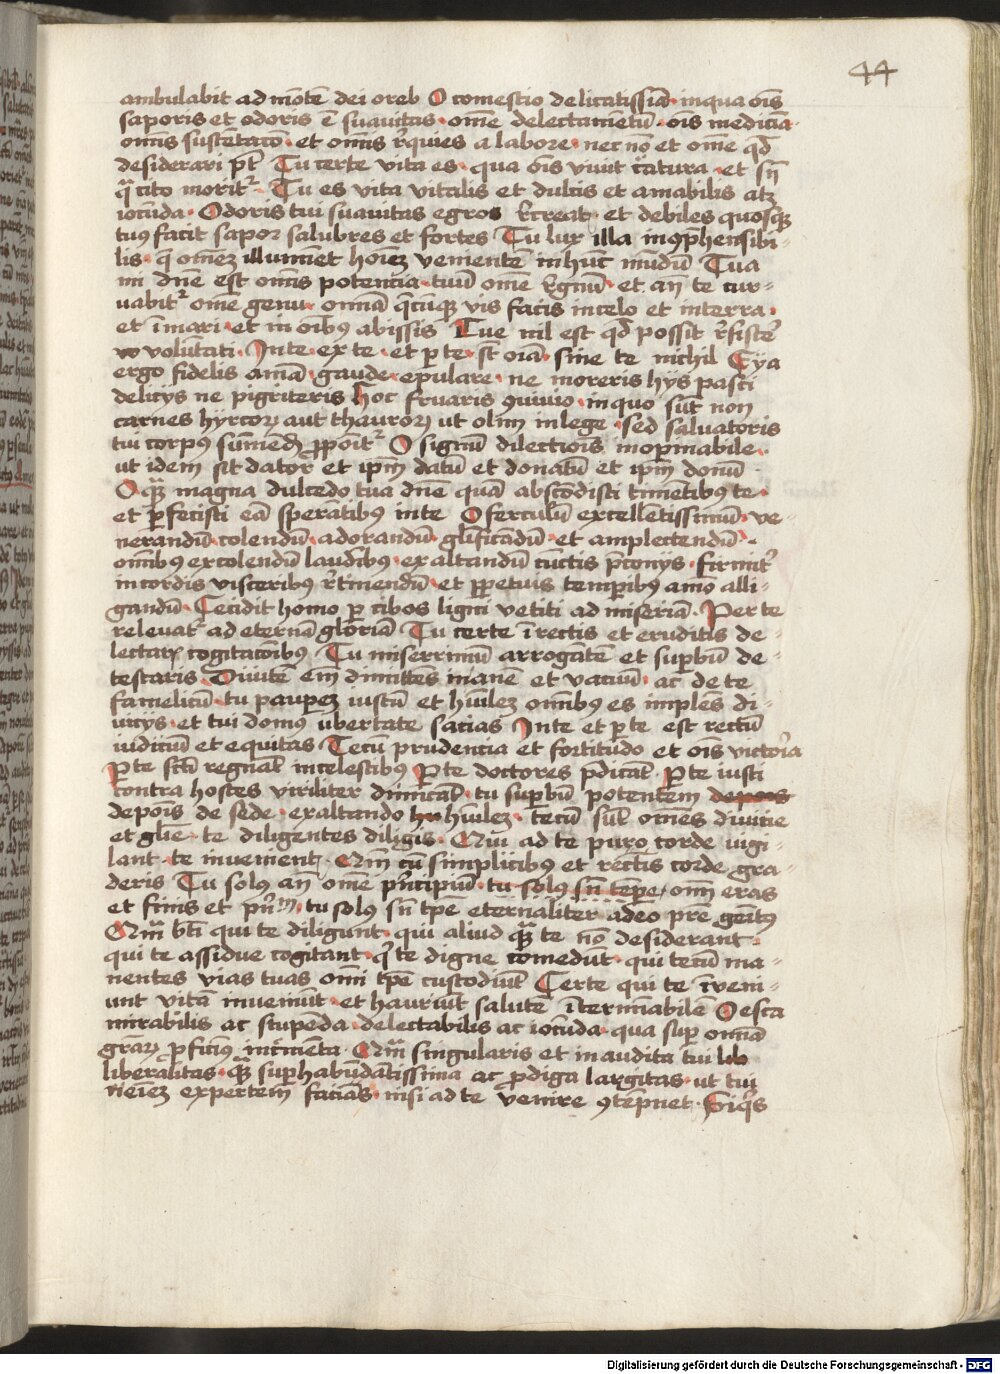 44
ambulabit ad mōtē dei oreb O comestio delicatissīa inqua oīs
saporis et odoris ē suauitas · om̄e delectamētū · oīs medicīa
om̄is sustētatō · et om̄is r̄quies a labore · nec nō et om̄e qd̄
desiderari pt̄ Tu certe vita es · qua oīs viuit c̄atura · et sn̄
q̄ cito morit᷑ · Tu es vita vitalis et dulcis et amabilis atꝫ
iocūda · Odoris tui suauitas egros r̄creat · et debiles quosqꝫ
tuꝰ facit sapor salubres et fortes Tu lux illa inꝯp̄hensibi-
lis · q̄ om̄eꝫ illumīet hoīeꝫ venientē inhuc mūdū Tua
mi dn̄e est om̄is potencia · tuū om̄e r̄gnū · et an̄ te cur-
uabit᷑ om̄e genu · om̄ia q̄cūqꝫ vis facis incelo et interra ·
et ī mari · et in oībꝰ abissis Tue nil est qd̄ possit r̄sistē
voluntati · Inte · ex te · et ꝑ te · st̄ oīa · sine te nichil Eya
ergo fidelis aīa · gaude · epulare · ne moreris hys pasci
delicys ne pigriteris hoc fruaris ꝯuiuio · inquo sūt non
carnes hyrcoꝝ aut thauroꝝ ut olim inlege · sed saluatoris
tui corpꝰ sūmēdū ꝓpoīt᷑ O signū dilectiōis inopinabile ·
ut idem sit dator et ip̄m datū et donatū et ip̄m donū
O qꝫ magna dulcedo tua dn̄e quā abscōdisti timētibꝰ te ·
et ꝑfecisti eā sperātibꝰ inte O ferculū excellētissimū · ve-
nerandū · colendū · adorandū · glīficādū · et amplectendū ·
om̄ibꝰ excolendū laudibꝰ · exaltandū cūctis p̄conys · firmit᷑
in cordis visceribꝰ r̄timendū · et ꝑpetuis temp̄ibus aīo alli-
gandū · Cecidit homo ꝑ cibos ligni vetiti ad miseriā · Per te
releuat᷑ ad eternā gloriā Tu certe ī rectis et eruditis de-
lectaꝝ cogitacōibꝰ Tu miserrimū arrogātē et suꝑbū de-
testaris · Diuitē em̄ dimittēs inanē et vacuū · ac de te
famelicū · tu pauꝑeꝫ iustū et hūileꝫ om̄ibꝰ es implēs di-
uicys · et tui domꝰ vbertate sacias Inte et ꝑ te est rectū
iudiciū et equitas · Tecū prudencia et fortitudo et oīs victoria
ꝑ te sc̄i regnāt incelestibꝰ ꝑ te doctores p̄dicāt · ꝑ te iusti
contra hostes viriliter dimicāt · tu suꝑbū potentem
depoīs de sede · exaltando hūileꝫ · tecū sūt om̄es diuitie
et glīe · te diligentes diligis · Qui ad te puro corde uigi-
lant · te inuenient · Qm̄ cū simplicibus et rectis corde gra-
deris Tu solꝰ an̄ om̄e p̄ncipiū · tu solus sn̄ tēpe · om̄i eras
et finis et pn̄m · tu solꝰ sn̄ tp̄e eternaliter adeo pr̄e genitꝰ
Qm̄ bt̄i qui te diligunt · qui aliud qꝫ te nō desiderant ·
qui te assidue cogitant · q̄ te digne comedūt · qui tecū ma-
nentes vias tuas om̄i tp̄e custodiūt Certe qui te īueni-
unt vitā inueniūt · et hauriūt salutē īterminabilē O esca
mirabilis ac stupēda · delectabilis ac iocūda · qua suꝑ om̄ia
gr̄aꝝ ꝓficiūt incremēta · Qm̄ singularis et inaudita tui lib
liberalitas · qꝫ suꝑhabūdātissima ac ꝓdiga largitas · ut tui
nemīeꝫ expertem facias · nisi ad te venire ꝯtēpnet · Siq̄s
Digitalisierung gefördert durch die Deutsche Forschungsgemeinschaft - DFG